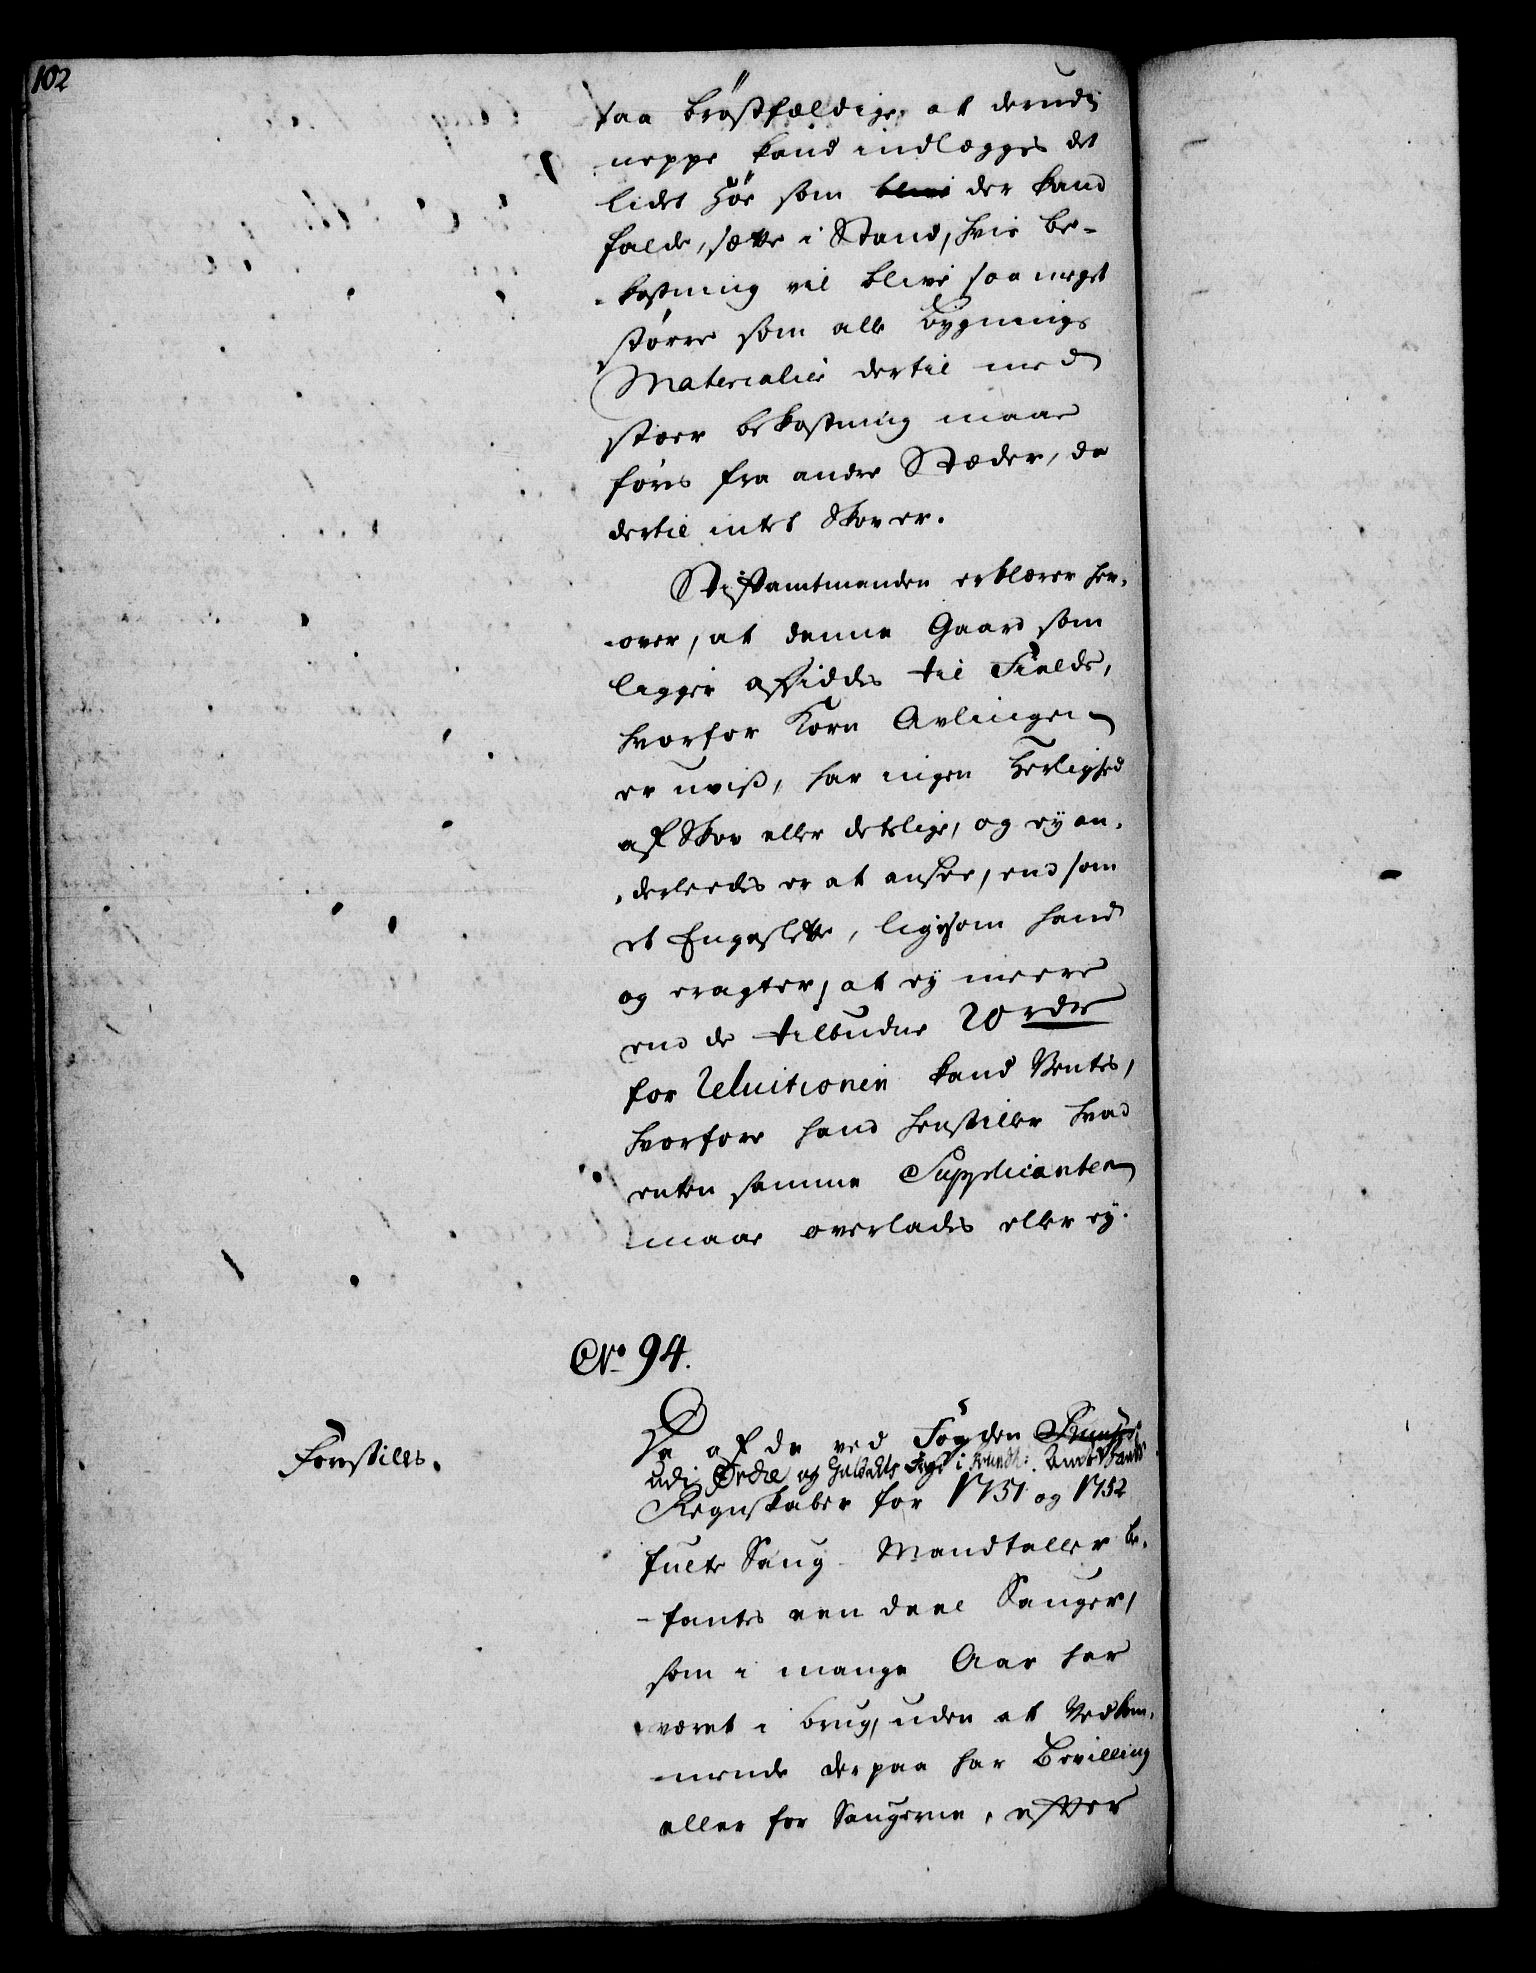 102
saa brøstfældige, at derudi
neppe kand indlægges det
lidet Høe som blive der kand
falde, sætte i Stand, hvis be-
-kostning vil blive saa meget
større som alle Bygnings
Materialier dertil med
stoer bekostning maae
føres fra andre Stæder, da
dertil intet Skov er.
Stiftamtmanden erklærer her-
-over, at denne Gaard som
ligger afsiddes til Fields,
hvorfor Korn Avlingen
er uviss, har ingen Herlighed
af Skov eller deslige, og ey an-
-derleedes er at ansee, end som
et Engeslette, ligesom hand
og eragter, at ey meere
end de tilbudne 20 rdr
for Reluitionen kand Ventes,
hvorfore hand henstiller hvad
enten samme Supplicanten
maae overlades eller ey.
No. 94.
Forestilles.
Da af de ved Fogden
udi Ørcke og Guldals Fogd: i Trundh: Amt
Regnskaber for 1751 og 1752
fulte Saug-Mandtaller be-
-fantes een deel Sauger,
som i mange Aar har
været i brug, uden at Vedkom-
-mende derpaa har Bevilling
eller for Saugerne, efter